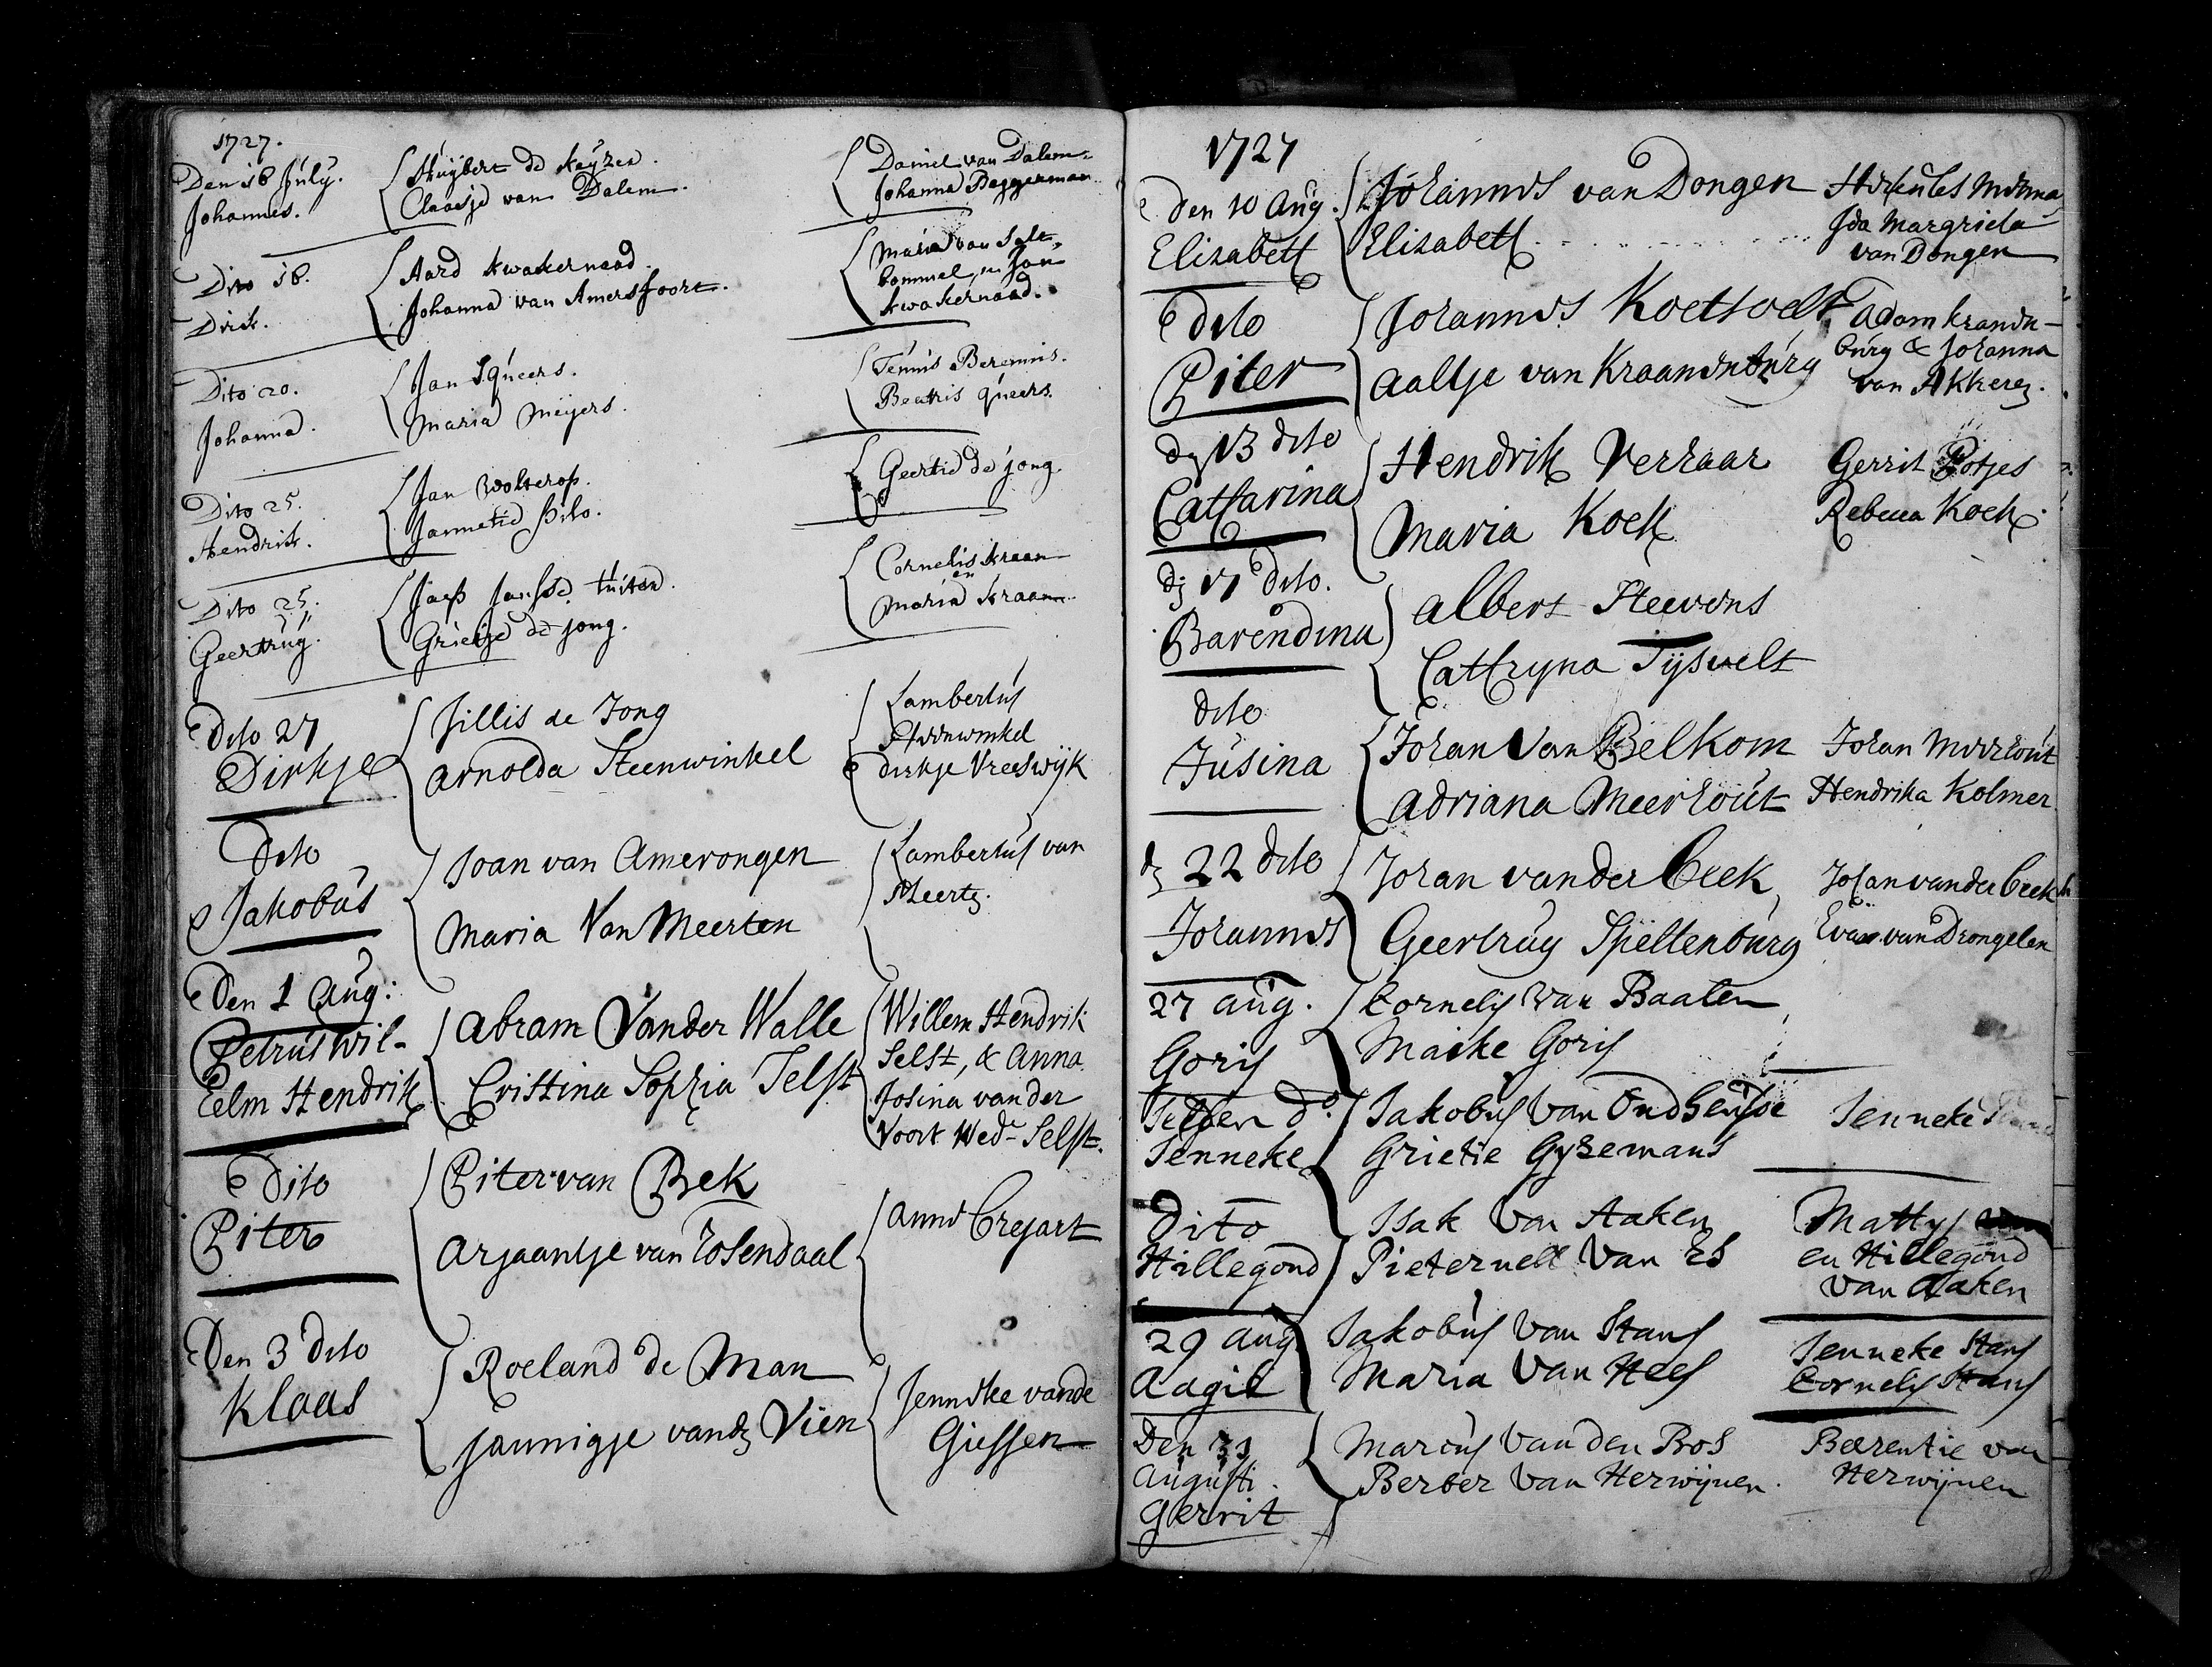 1727.
Den 16 July.
Johannes.
Huijbert de keyzer.
Claasje van Dalem.
Daniel van Dalem
Johanna Baggerman
Dito 16.
Dirk.
Aard kwakernaad.
Johanna van Amersfoort.
Maria van Salt-
bommel, en Jan
kwakernaad.
Dito 20.
Johanna.
Jan Squeers.
Maria Meijers.
Teunis Beremis.
Beatris queers.
Dito 25.
Hendrik.
Jan Wolterop.
Jannetie
Geertie de jong.
Dito 25.
Geertruij.
Jansse tuiten.
Grietje de jong.
Cornelis kraan
en
Maria kraan.
Dito 27
Dirkje
Jillis de Jong
Arnolda Steenwinkel
Lambertus
Steenwinkel
dirkje Vreeswijk
dito
Jakobus
Joan van Amerongen
Maria Van Meerten
Lambertus van
Meert
Den 1 Aug:
Petrus Wil-
helm Hendrik
Abram Vander Walle
Cristina Sophia Selst
Willem Hendrik
Selst, & Anna
Josina van der
Voort Wed- Selst.
Dito
Piter
Piter van Bek
Arjaantje van Rosendaal
Anna
Den 3 dito
Klaas
Roeland de Man
jannigje vande Vien
Jenneke vande
Giessen
1727
den 10 Aug.
Elizabeth
Johannes van Dongen
Elizabeth
Herkules
Ida Margrieta
van Dongen
dito
Piter
Johannes
Aaltje van Kraanenburg
Adam kranen-
burg & Johanna
van Akkere
den 13 dito
Catharina
Hendrik Verhaar
Maria Koek
Gerrit Potjes
Rebecca Koek
den 17 dito.
Barendina
Albert Steevens
Cathryna Tijswelt
dito
Jusina
Johan Van Belkom
Adriana Meerhout
Johan Meerhout
Hendrika Kolmer
den 22 dito
Johannes
Johan vander Beek,
Geertruy Speltenburg
Johan vander Beek
Eva van Drongelen
27 aug.
Goris
Cornelis Van Baalen
Maike Goris
Selfen do
Jenneke
Jakobus Van Oudheusde
Grietie Gyzemans
Jenneke
Dito
Hillegond
Isak Van Aaken
Pieternell Van Es
Mattys
en Hillegond
van Aaken
29 aug
Aagie
Jakobus Van Stans
Maria Van Hees
Jenneke Stans
Cornelis Stans
Den 31
Augusti.
Gerrit
Marcus Van den Bos
Berber Van Herwijnen.
Beerentie van
Herwijnen